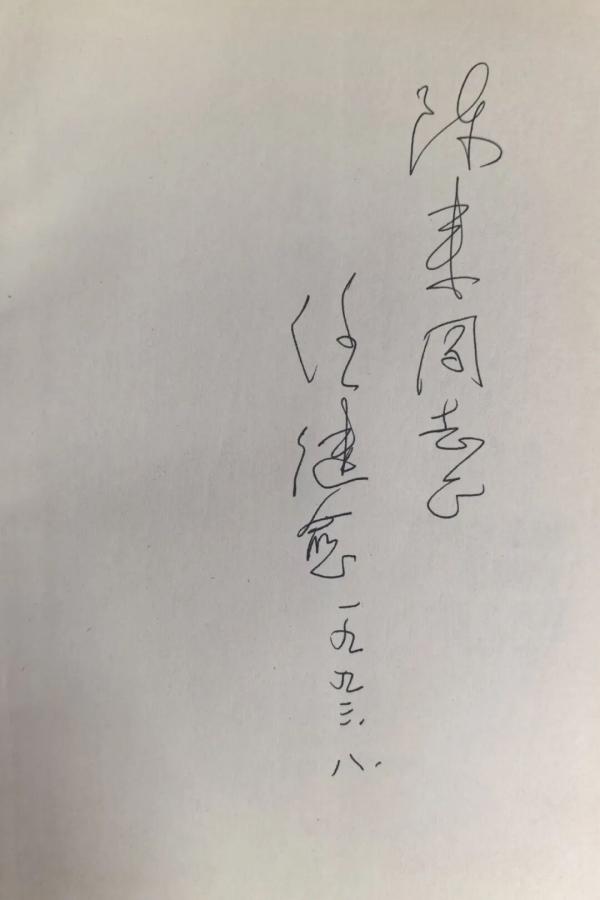 陈来同志
任继愈 一九九三.八.